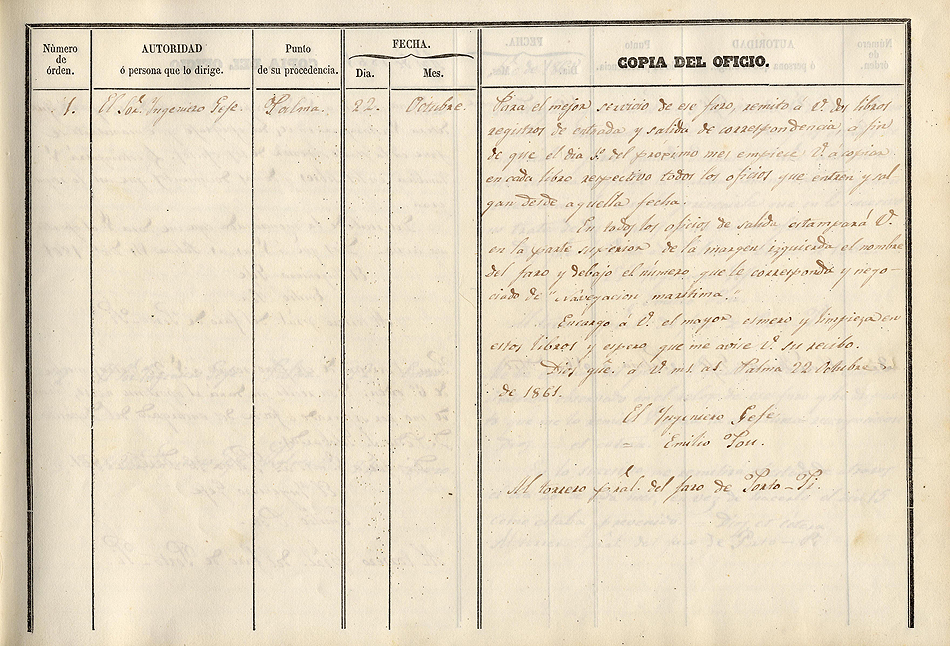 Número de órden.
AUTORIDAD ó persona que lo dirige.
Punto de su procedencia.
FECHA.
Dia.
Mes.
COPIA DEL OFICIO.
1.
El Sor. Ingeniero Gefe.
Palma.
22.
Octubre.
Para el mejor servicio de ese faro, remito á V. dos libros
registros de entrada y salida de correspondencia á fin
de que el dia 1o. del proximo mes empiece V. á copiar
en cada libro respectivo todos los oficios que entren y sal-
gan desde aquella fecha.
En todos los oficios de salida estampará V.
en la parte superior de la margen izquierda el nombre
del faro y debajo el número que le corresponda y nego-
ciado de "Navegacion maritima."
Encargo á V. el mayor esmero y limpieza en
estos libros y espero que me avise V. su recibo.
Dios gue. á V. ms. as. Palma 22 Octubre
de 1861.
El Ingeniero Gefe
= Emilio Pou.
Al torrero pral. del faro de Porto-Pi.